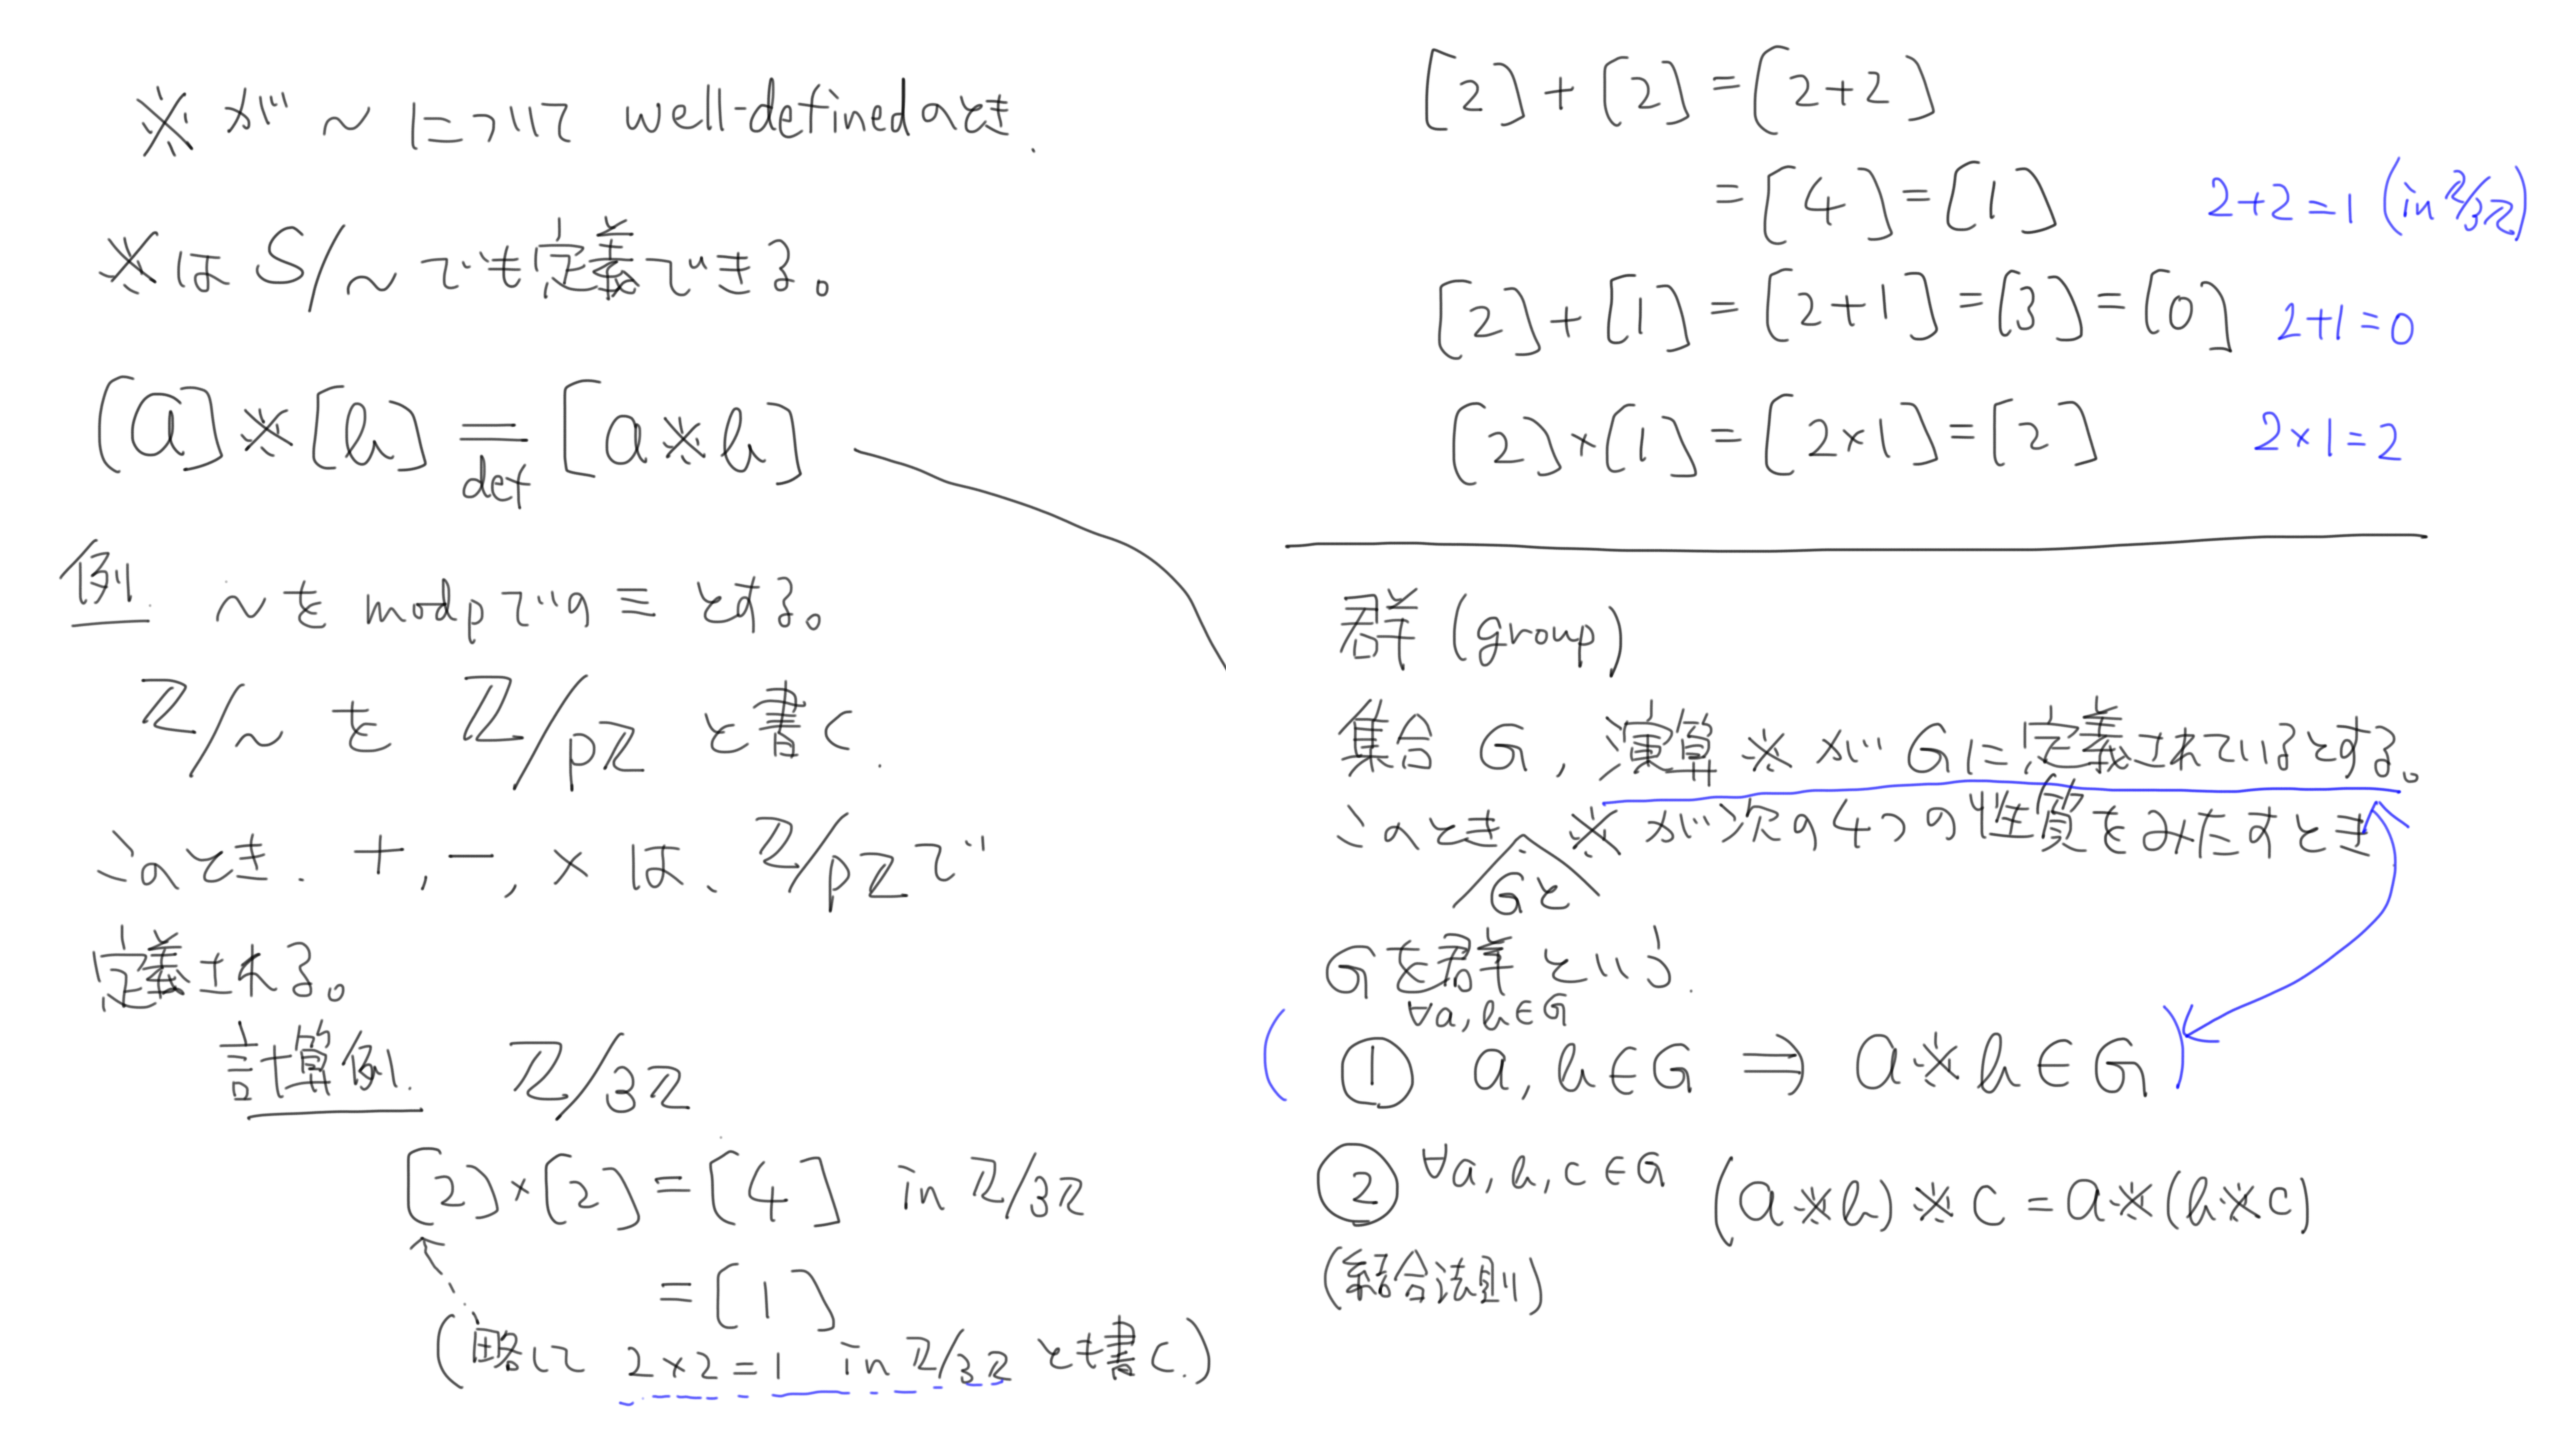 ※ が ~ について well-definedのとき.
※は S/~ でも定義できる。
[a]※[b] =def [a※b]
例. ~を mod pでの ≡ とする。
ℤ/~ を ℤ/pℤ と書く.
このとき. +, -, × は、ℤ/pℤで
定義される。
計算例. ℤ/3ℤ
[2]×[2] = [4] in ℤ/3ℤ
= [1]
(略して 2×2=1 in ℤ/3ℤ とも書く.)
[2] + [2] = [2+2]
= [4] = [1] 2+2=1 (in ℤ/3ℤ)
[2] + [1] = [2+1] = [3] = [0] 2+1=0
[2]×[1] = [2×1] = [2] 2×1=2
群 (group)
集合 G, 演算※が Gに定義されているとする。
このとき. ※ が次の4つの性質をみたすとき
Gと
Gを群という.
∀a, b∈G
(① a, b∈G ⇒ a※b∈G)
② ∀a, b, c∈G (a※b)※c = a※(b※c)
(結合法則)